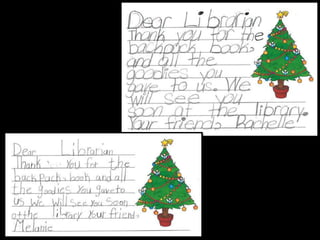 Dear Librarian
Thank you for the
backpack, book,
and all the
goodies you
gave to us. We
will see you
soon at the library.
Your friend, Rachelle
Dear Librarian
Thank you for the
backpack, book and all
the goodies you gave to
us we will see you soon
at the library your friend,
Melanie